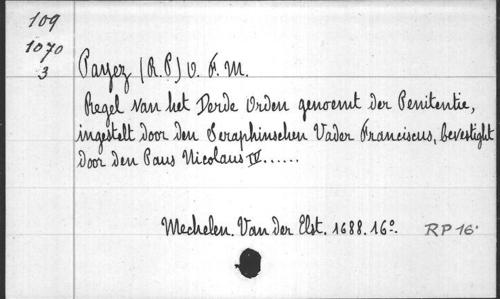 109
1070
3
Payez (R.P.) O.F.M.
Regel van het Derde Orden genoemt der Penitentie,
ingestelt door den Seraphinschen Vader Franciscus, bevestight
door den Paus Nicolaus IV......
Mechelen. Van der Elst. 1688. 16º. RP 16º